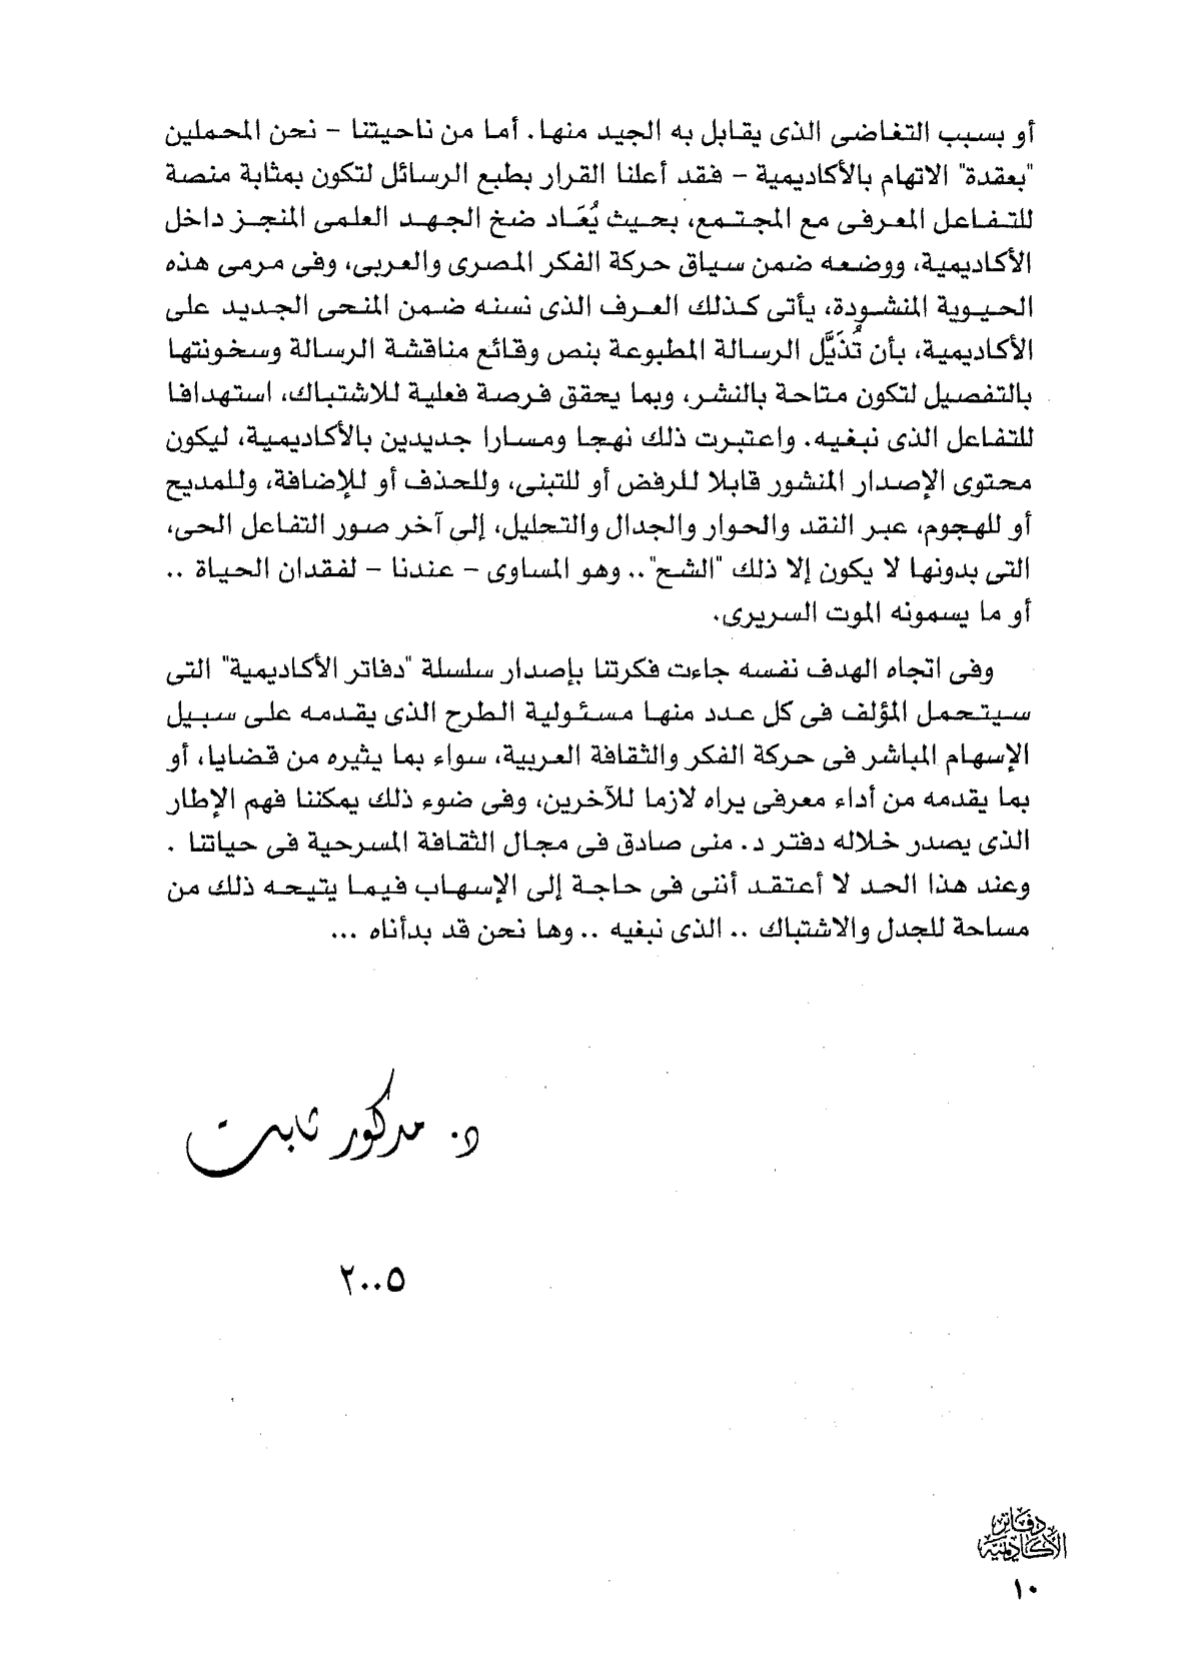 أو بسبب التغاضى الذى يقابل به الجيد منها. أما من ناحيتنا – نحن المحملين
"بعقدة" الاتهام بالأكاديمية – فقد أعلنا القرار بطبع الرسائل لتكون بمثابة منصة
للتفاعل المعرفى مع المجتمع، بحيث يُعَاد ضخ الجهد العلمى المنجز داخل
الأكاديمية، ووضعه ضمن سياق حركة الفكر المصرى والعربى، وفى مرمى هذه
الحيوية المنشودة، يأتى كذلك العرف الذى نسنه ضمن المنحى الجديد على
الأكاديمية، بأن تُذَيَّل الرسالة المطبوعة بنص وقائع مناقشة الرسالة وسخونتها
بالتفصيل لتكون متاحة بالنشر، وبما يحقق فرصة فعلية للاشتباك، استهدافا
للتفاعل الذى نبغيه. واعتبرت ذلك نهجا ومسارا جديدين بالأكاديمية، ليكون
محتوى الإصدار المنشور قابلا للرفض أو للتبنى، وللحذف أو للإضافة، وللمديح
أو للهجوم، عبر النقد والحوار والجدال والتحليل، إلى آخر صور التفاعل الحى،
التى بدونها لا يكون إلا ذلك "الشح".. وهو المساوى – عندنا – لفقدان الحياة ..
أو ما يسمونه الموت السريرى.
وفى اتجاه الهدف نفسه جاءت فكرتنا بإصدار سلسلة "دفاتر الأكاديمية" التى
سيتحمل المؤلف فى كل عدد منها مسئولية الطرح الذى يقدمه على سبيل
الإسهام المباشر فى حركة الفكر والثقافة العربية، سواء بما يثيره من قضايا، أو
بما يقدمه من أداء معرفى يراه لازما للآخرين، وفى ضوء ذلك يمكننا فهم الإطار
الذى يصدر خلاله دفتر د. منى صادق فى مجال الثقافة المسرحية فى حياتنا .
وعند هذا الحد لا أعتقد أننى فى حاجة إلى الإسهاب فيما يتيحه ذلك من
مساحة للجدل والاشتباك .. الذى نبغيه .. وها نحن قد بدأناه ...
د. مدكور ثابت
٢٠٠٥
دفاتر
الأكاديمية
١٠